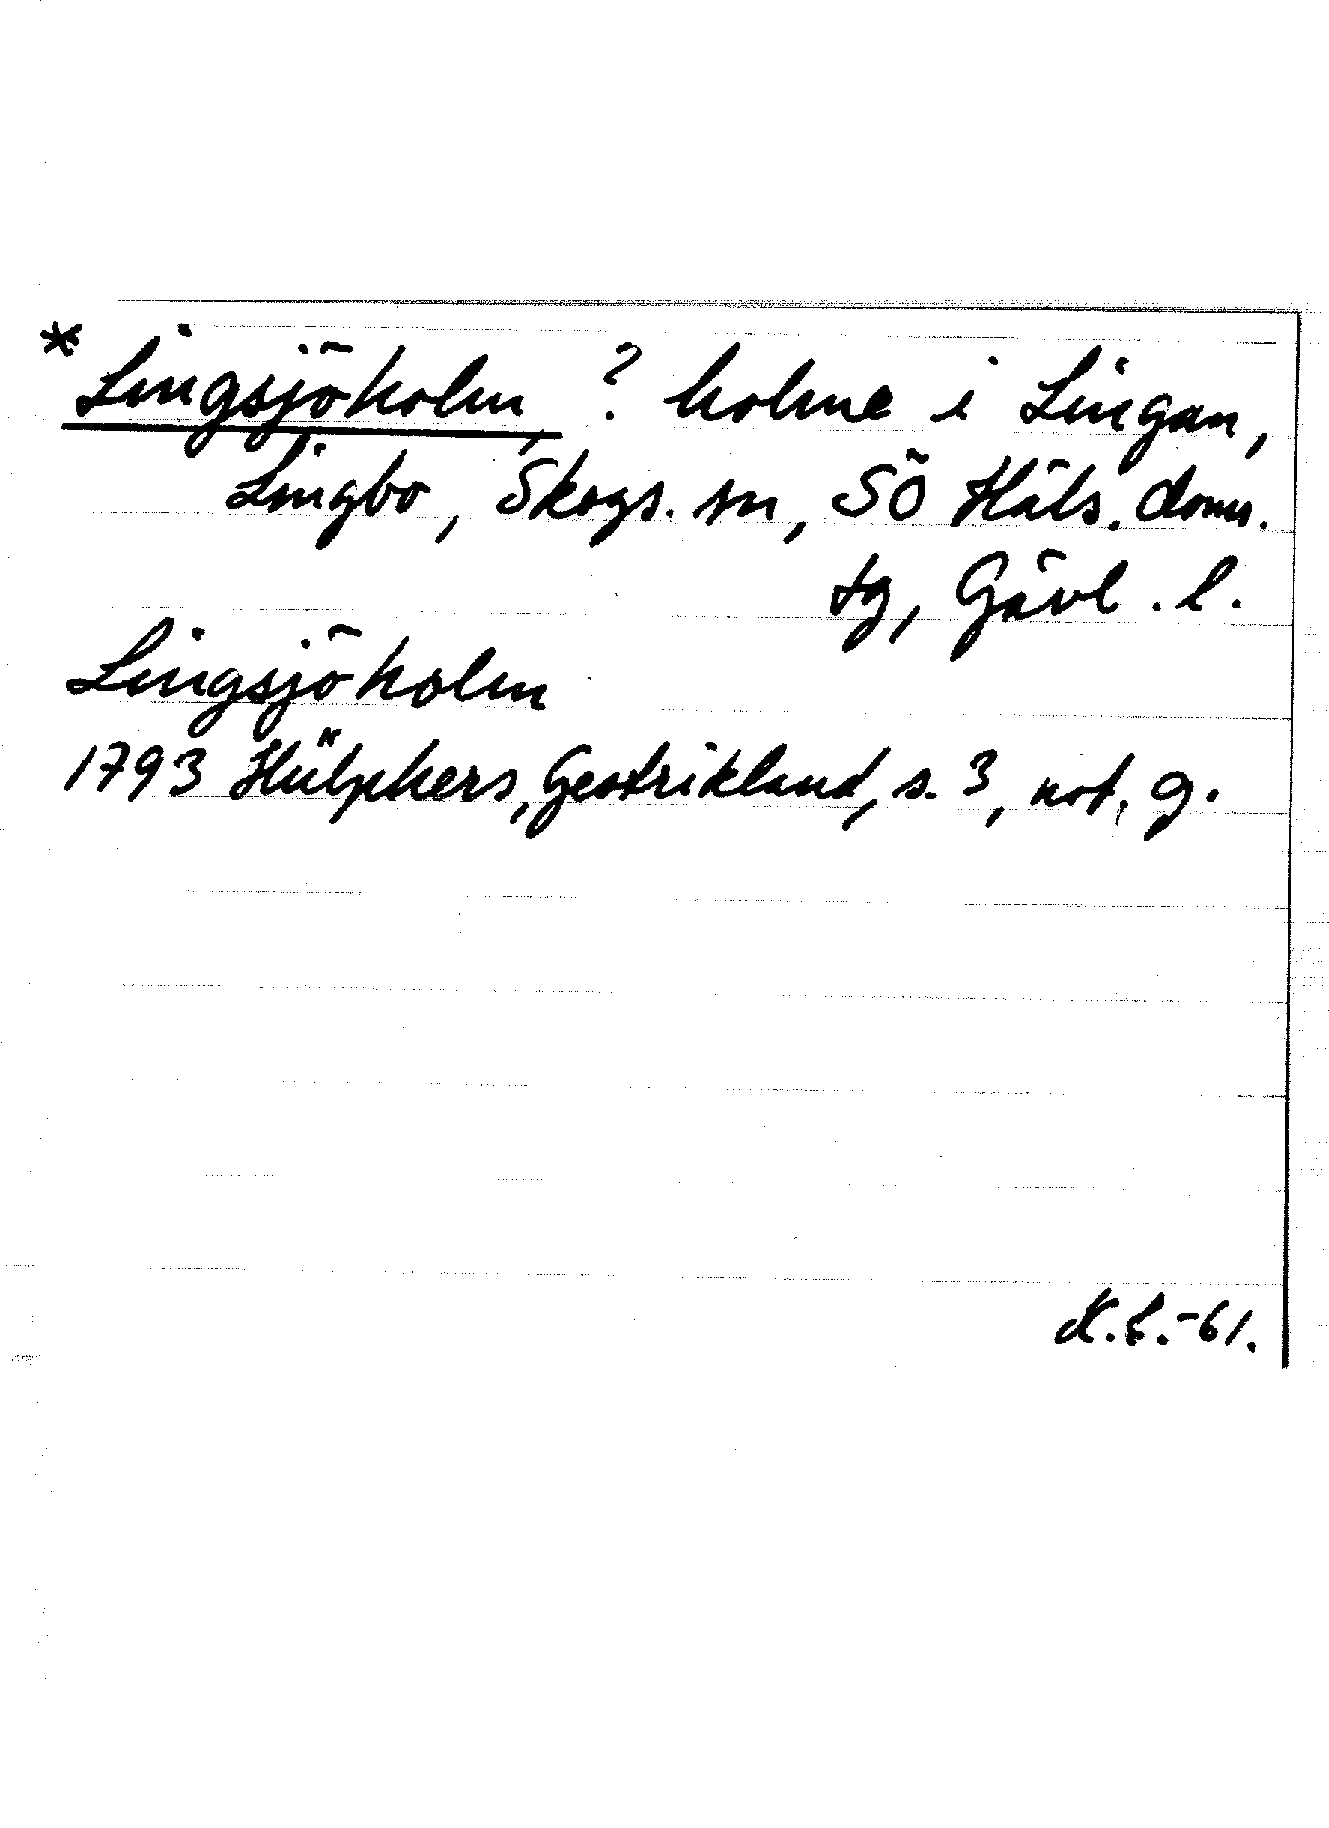 * Lingsjöholm, ? holme i Lingan,
Lingbo, Skogs. sn, SÖ Häls. doms.
tg, Gävl. l.
Lingsjöholm
1793 Hülphers, Gestrikland, s. 3, not. g.
K.L.-61.